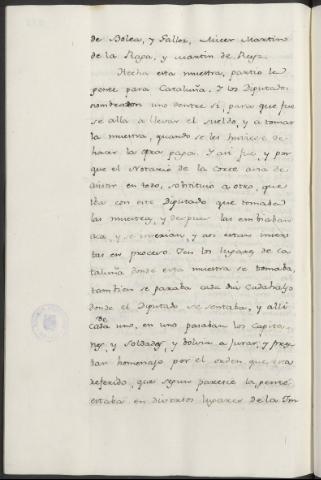 de Bolea, y Fallez, Micer Martin
de la Raga, y Martin de Reyz.
Hecha esta muestra, partio la
gente para Cataluña. Y los Diputados
nombraron uno dentre si, para que fue
se alla a llevar el sueldo, y a tomar
la muestra, quando se les huviere de
hacer la otra paga. Y asi fue, y por
que el Notario de la Corte avia de
asistir en todo, substituio a otro, que
iba con este Diputado que tomaba
las muestras, y despues las embiaban
aca, y se inserian, y asi estan
tas en proceso. En los lugares de Ca
taluña donde esta muestra se tomaba,
tambien se paraba cada dia Cadahalso
donde el Diputado se sentaba, y alli
de
cada uno, en uno pasaban los Capita
nes, y soldados, y bolvian a jurar, y pres
tar homenaje por el orden que esta
referido, que segun parece la gente
estaba en diversos lugares de la